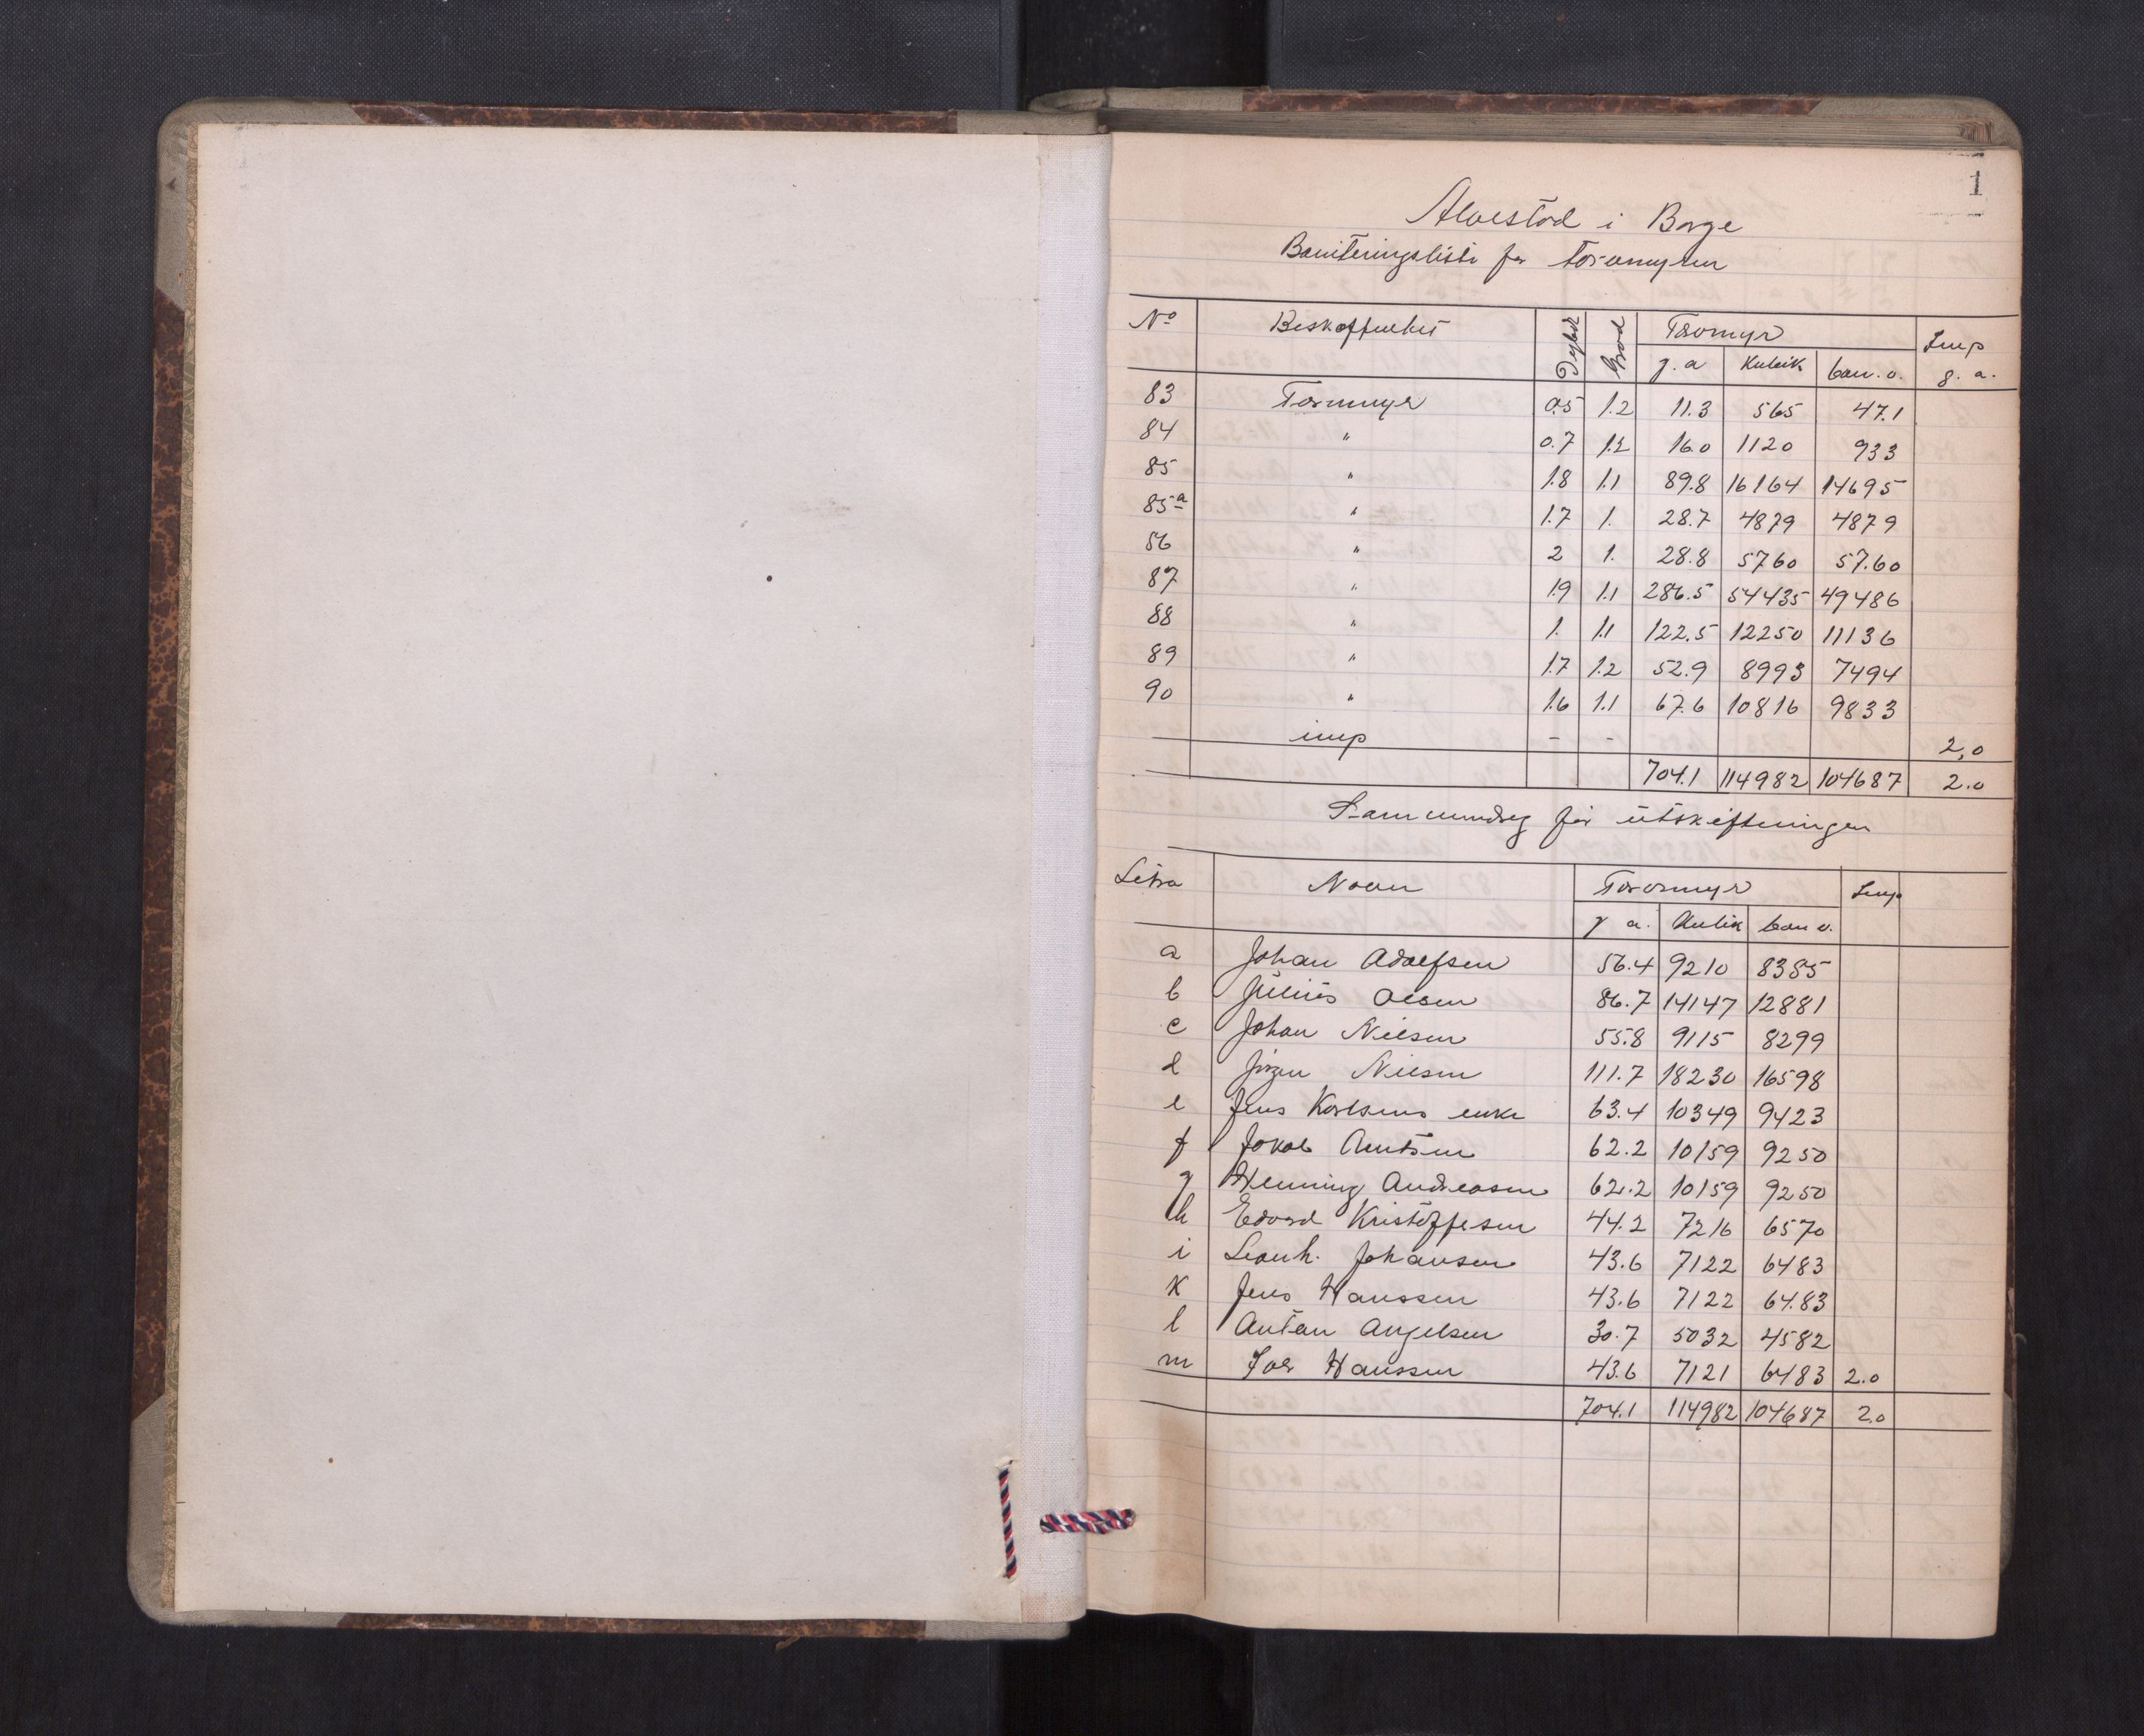 1
Alvestad i Borge
Boniteringsliste for torvmyren
No Beskaffenhet Dybde Grad Torvmyr Imp
g. a Kubik bon. v. g. a.
83 Torvmyr 0.5 1.2 11.3 565 47.1
84 " 0.7 1.2 16.0 1120 933
85 " 1.8 1.1 89.8 16164 14695
85a " 1.7 1. 28.7 4879 4879
86 " 2 1. 28.8 5760 57.60
87 " 1.9 1.1 286.5 54435 49486
88 " 1. 1.1 122.5 12250 11136
89 " 1.7 1.2 52.9 8993 7494
90 " 1.6 1.1 67.6 10816 9833
imp - - 2,0
704.1 114982 104687 2.0
Sammendrag før utskiftningen
Litra Navn Torvmyr Imp
g a. Kubik bon v.
a Johan Adolfsen 56.4 9210 8385
b Julius Olsen 86.7 14147 12881
c Johan Nilsen 55.8 9115 8299
d Jörgen Nilsen 111.7 18230 16598
e Jens Karlsens enke 63.4 10349 9423
f Jakob Arntsen 62.2 10159 9250
g Henning Andreasen 62.2 10159 9250
h Edvard Kristoffesen 44.2 7216 6570
i Leonh. Johansen 43.6 7122 6483
k Jens Hanssen 43.6 7122 64.83
l Anton Angelsen 30.7 5032 4582
m Hanssen 43.6 7121 6483 2.0
704.1 114982 104687 2.0